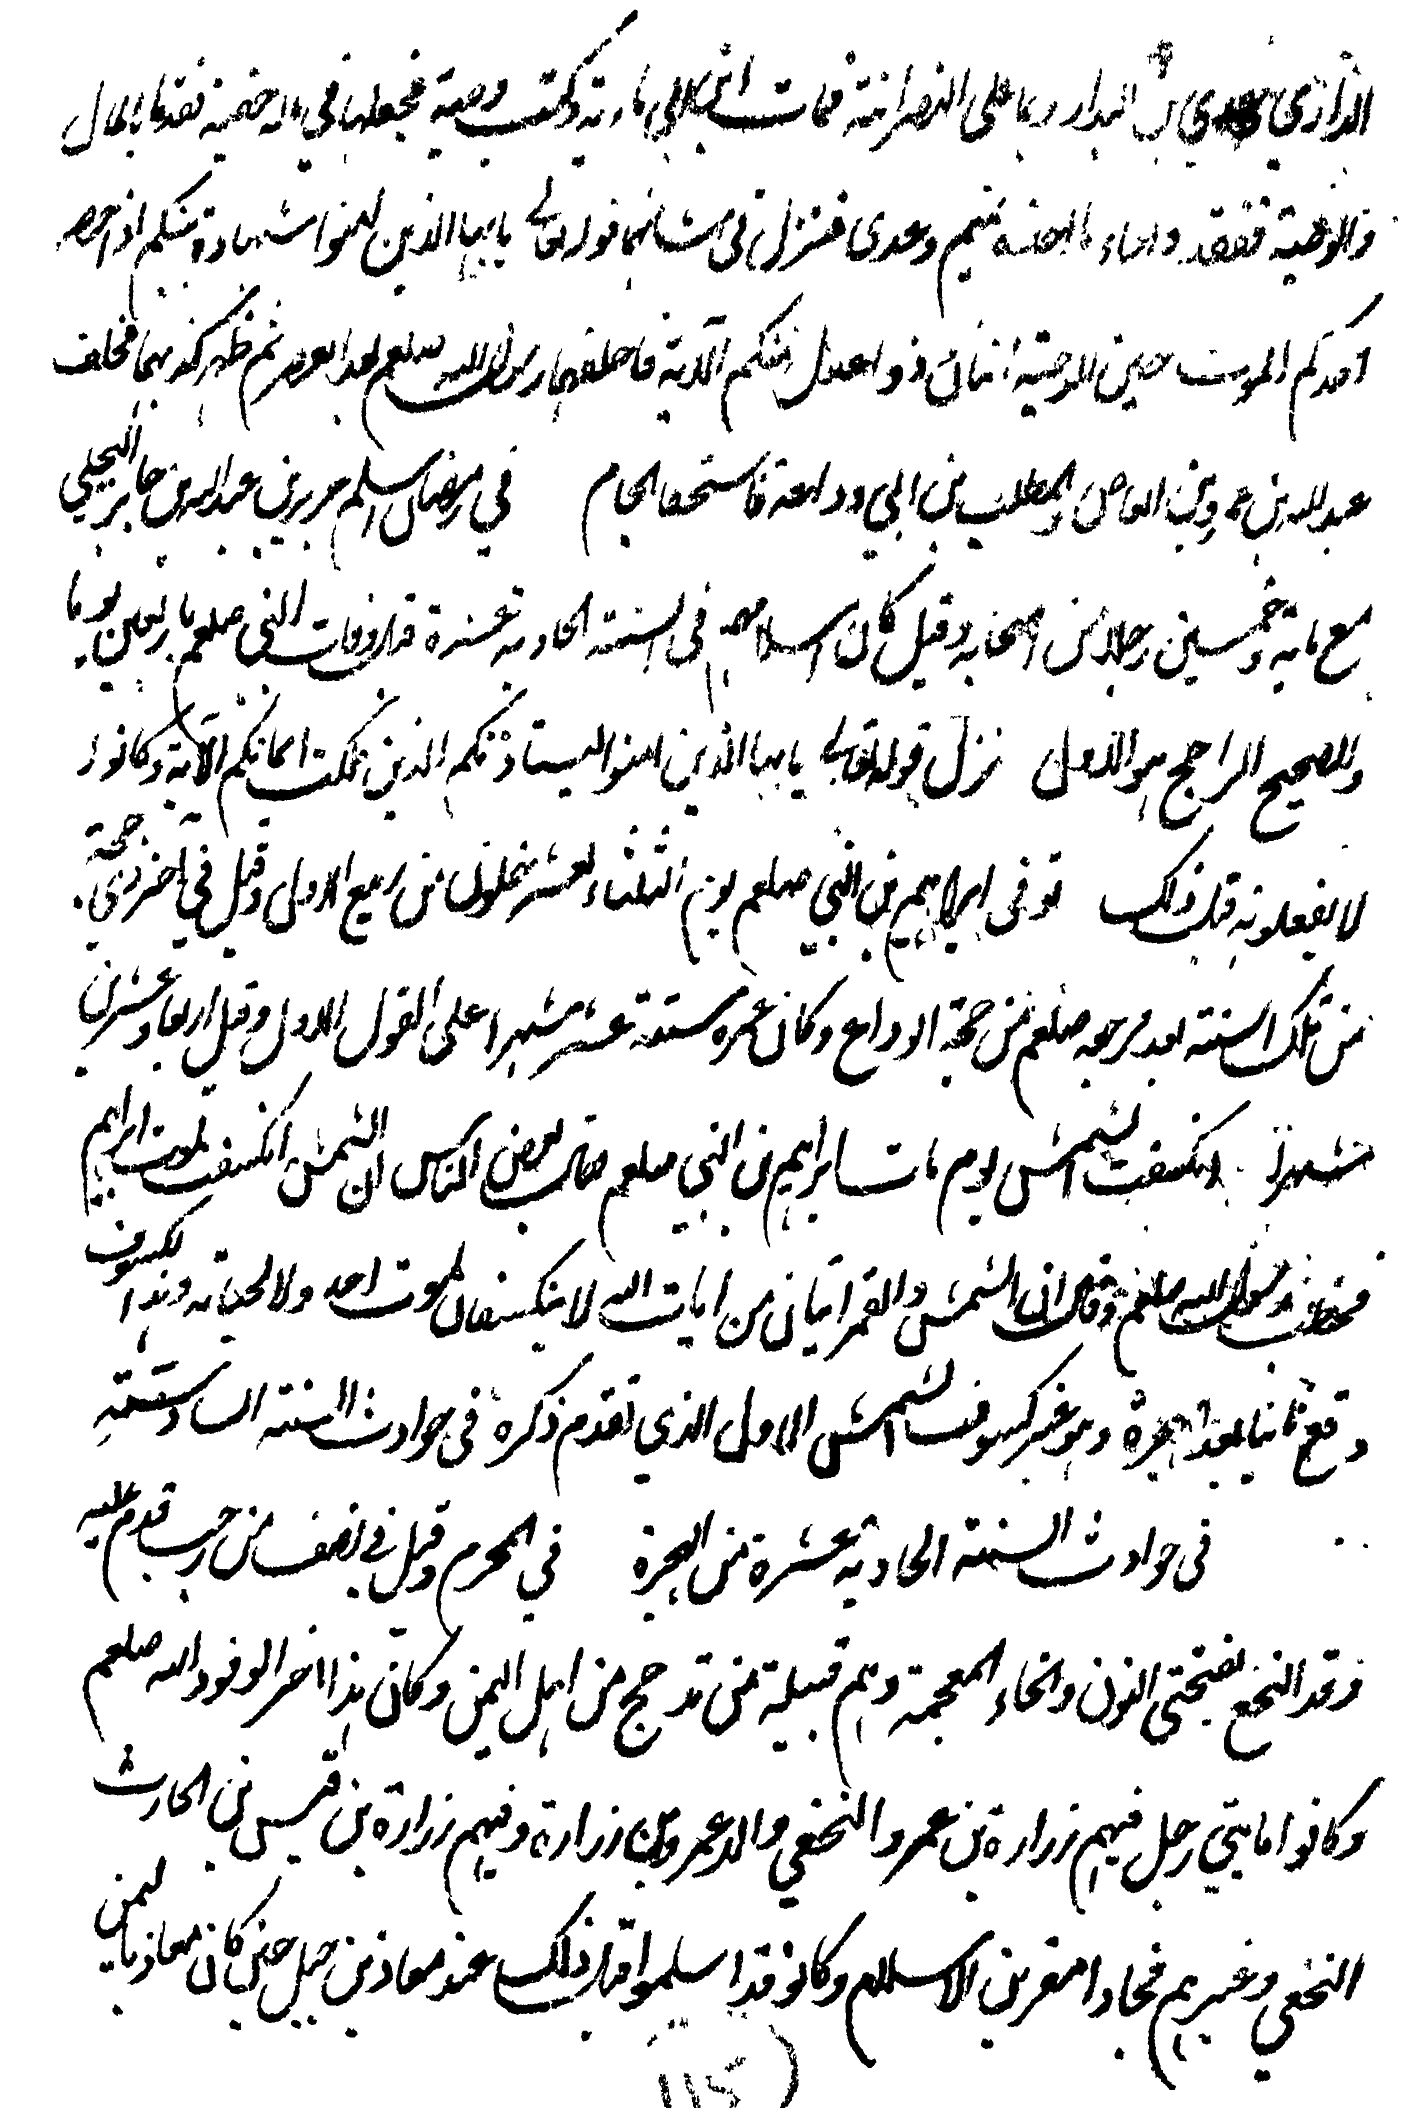 الداري وعدي بن البدار وبما على النصرانية فمات ابن ابي مارية وكتب وصية فجعلها في ماله خفية فقدما بالمال
والوصية ففقد واجاء تميم وعدى فنزل في شانهما قوله تعالى يايها الذين امنوا شهادة بينكم اذا حضر
احدكم الموت حين الوصية اثنان ذوا عدل منكم الآية فاحلفهما رسول الله صلعم بعد العصر ثم ظهر كذبهما فحلف
عبد الله بن عمرو بن العاص والمطلب بن ابي وداعة فاستحقا الجام في رمضان اسلم جرير بن عبد الله بن جابر البجلي
مع ماية وخمسين رجلا من اصحابه وقيل كان اسلامهم في السنة الحادية عشرة قبل وفات النبي صلعم باربعين يوما
والصحيح الراجح هو الاول نزل قوله تعالى يايها الذين امنوا ليستاذنكم الذين ملكت ايمانكم الآية وكانوا
لا يفعلونه قبل ذلك توفى ابراهيم بن النبي صلعم يوم الثلثاء لعشر خلون من ربيع الاول وقيل في آخر ذي حجة
من تلك السنة بعد مرجعه صلعم من حجة الوداع وكان عمره ستة عشر شهرا على القول الاول وقيل اربعا وعشرين
شهرا انكسفت الشمس يوم مات ابراهيم بن النبي صلعم فقال بعض الناس ان الشمس انكسفت لموت ابراهيم
فخطب رسول الله صلعم وقال ان الشمس والقمر ايتان من ايات الله لا ينكسفان لموت احد ولا لحياته وهذا الكسوف
وقع ثانيا بعد الهجرة وهو غير كسوف الشمس الاول الذي تقدم ذكره في حوادث السنة السادسة
في حوادث السنة الحادية عشرة من الهجرة في المحرم وقيل في نصف من رجب قدم عليه
وفد النخع بفتحتى النون والخاء المعجمة وهم قبيلة من مذحج من اهل اليمن وكان هذا اخر الوفود اليه صلعم
وكانوا مايتي رجل فيهم زرارة بن عمرو النخعي والد عمرو بن زرارة وفيهم زرارة بن قيس بن الحارث
النخعي وغيرهم فجاءوا مقرين بالاسلام وكانوا قد اسلموا قبل ذلك عند معاذ بن جبل حين كان معاذ باليمن